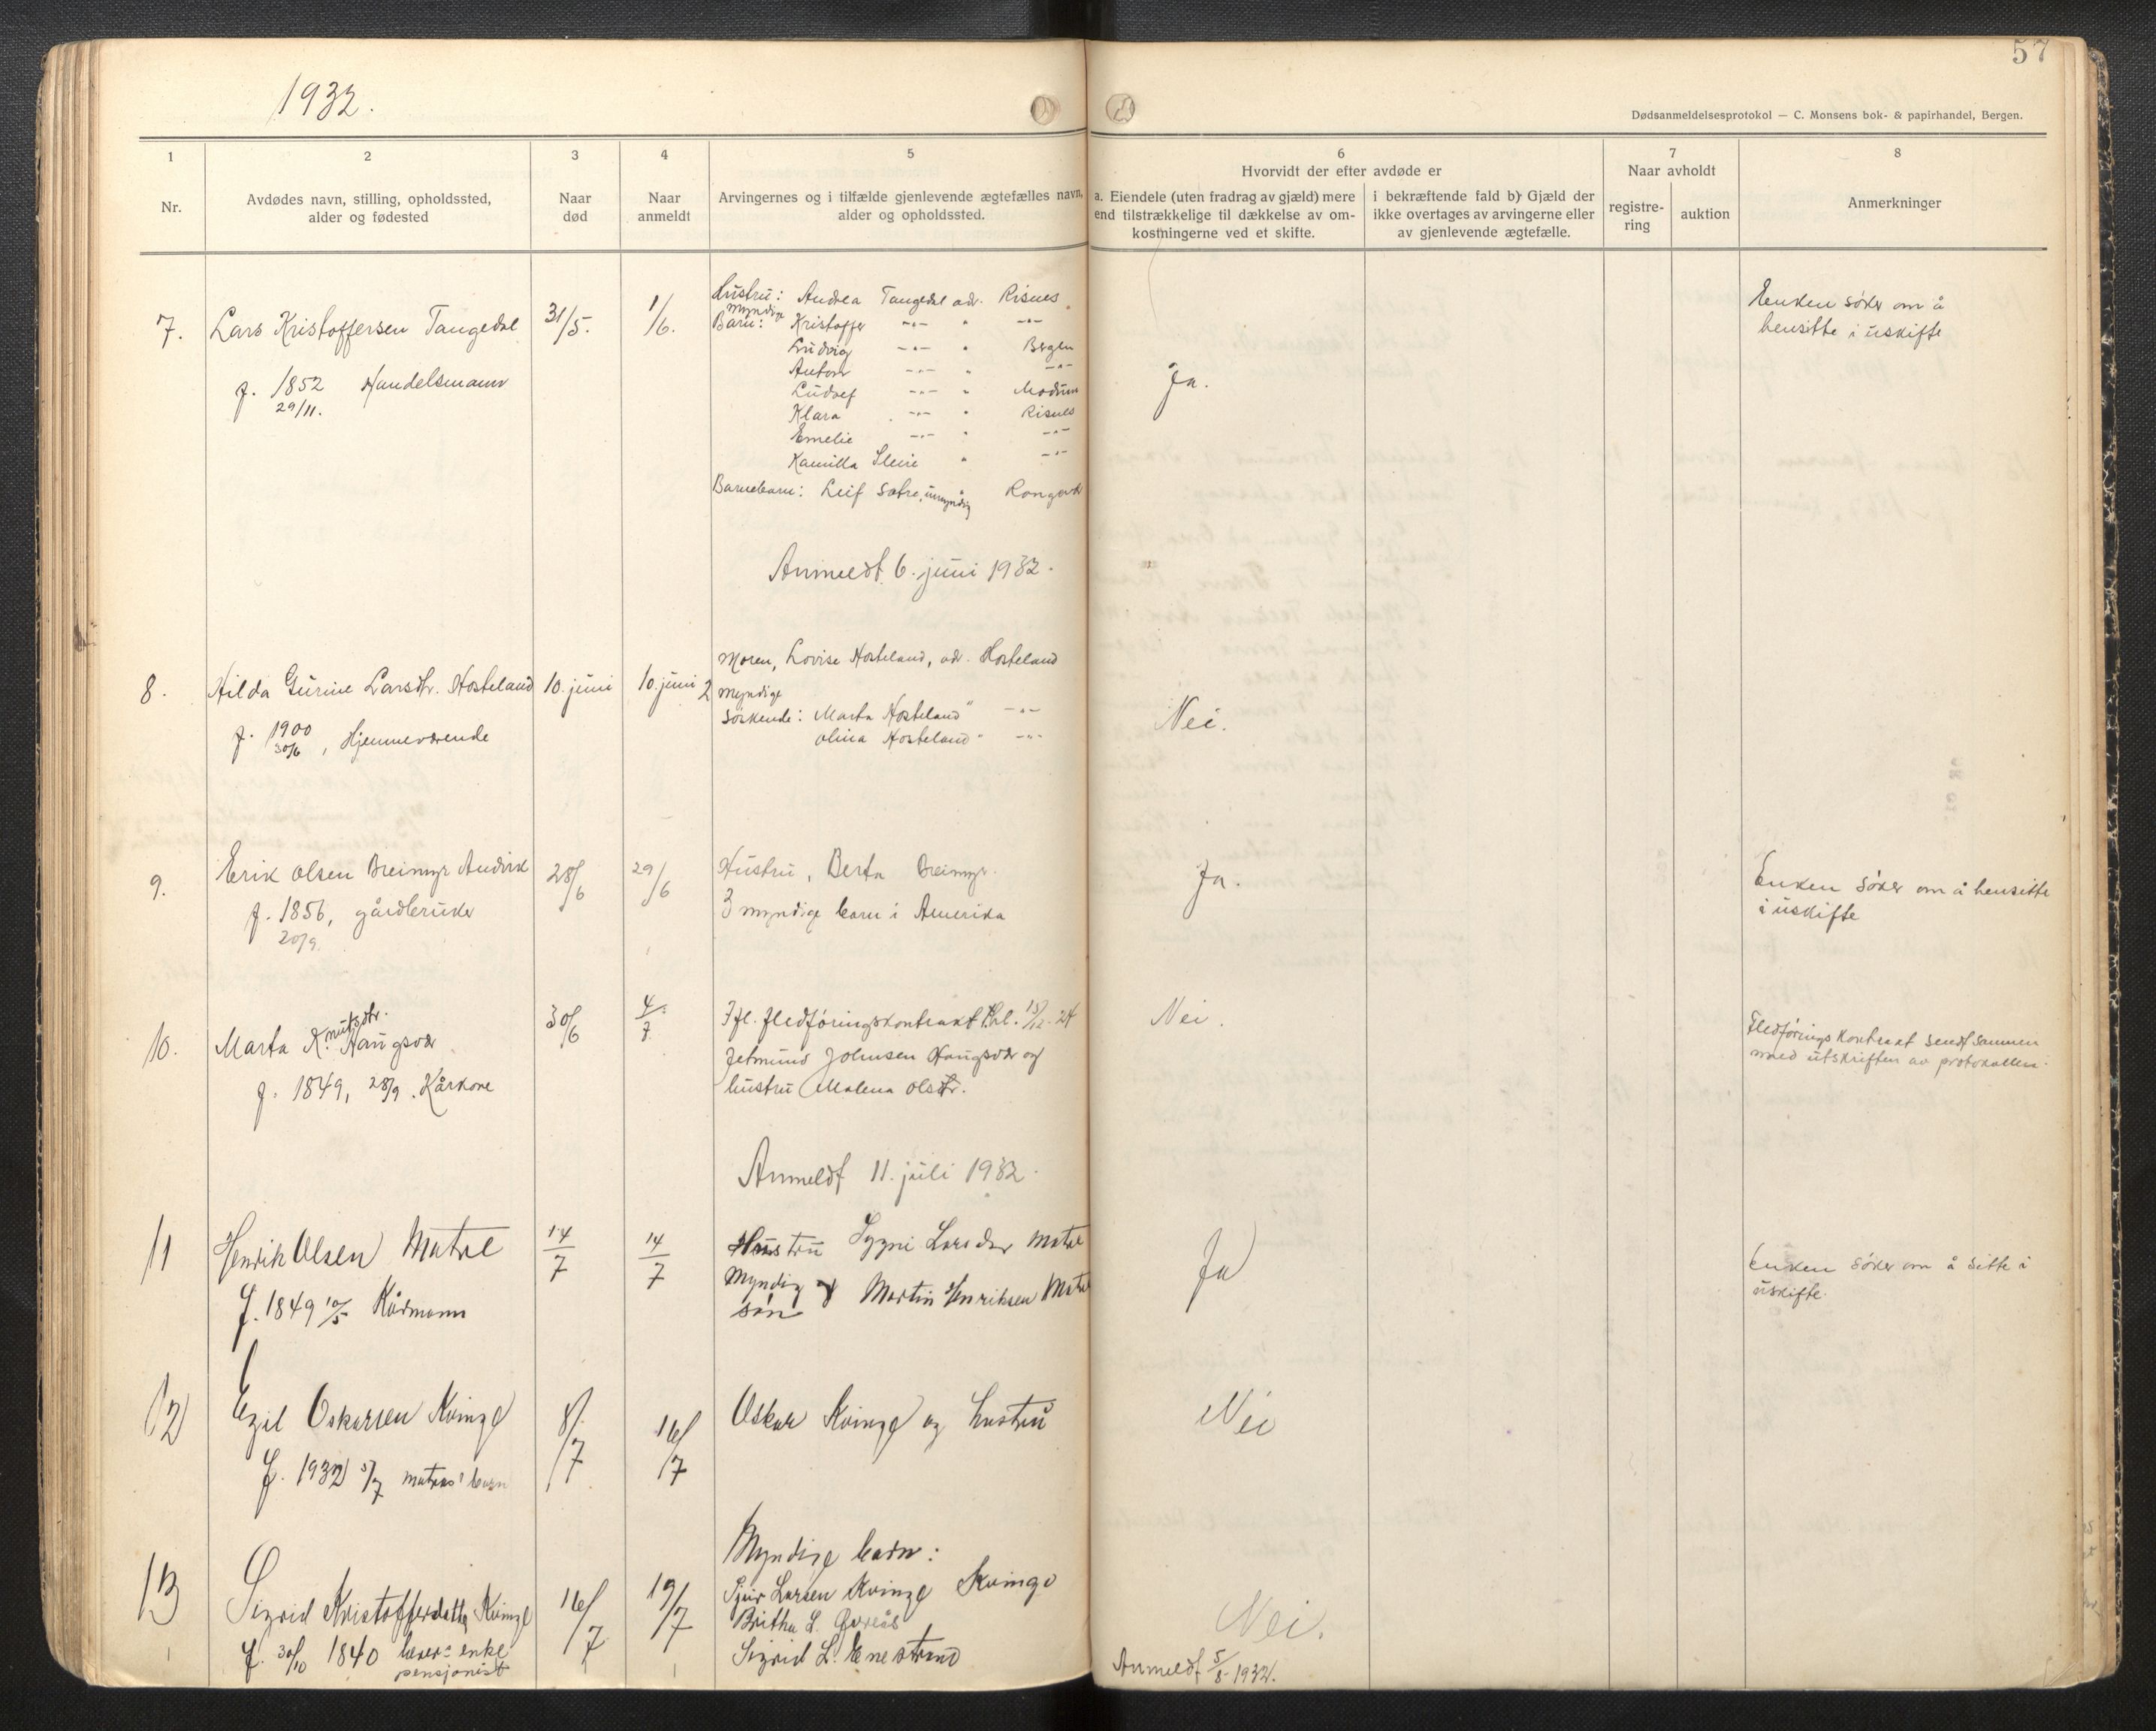 57
1932.
Dødsanmeldelsesprotokol — C. Monsens bok- & papirhandel, Bergen.
1
2
3
4
5
6
7
8
Nr.
Avdødes navn, stilling, opholdssted,
alder og fødested
Naar
død
Naar
anmeldt
Arvingernes og i tilfælde gjenlevende ægtefælles navn,
alder og opholdssted.
Hvorvidt der efter avdøde er
a. Eiendele (uten fradrag av gjæld) mere
end tilstrækkelige til dækkelse av om-
kostningerne ved et skifte.
i bekræftende fald b) Gjæld der
ikke overtages av arvingerne eller
av gjenlevende ægtefælle.
Naar avholdt
registre-
ring
auktion
Anmerkninger
7. Lars Kristoffersen Tangedal 31/5. 1/6.
f. 1852 Handelsmann
29/11.
Hustru: Andrea Tangedal adr. Risnes.
myndige
Barn: Kristoffer -"- " -"-
Ludvig -"- " Bergen
Anton -"- " -"-
Ludolf -"- " Modum
Klara -"- " Risnes
Emelie -"- " -"-
Kamilla Sleire " -"-
Barnebarn: Leif Sætre, umyndig
Ja.
Enken søker om å
hensitte i uskifte
Anmeldt 6. juni 1932.
8. Hilda Gurine Larsdtr. Hosteland 10. juni 10. juni
f. 1900
30/6, Hjemmeværende
Moren, Lovise Hosteland, adr. Hosteland
2 myndige
søskende: Marta Hosteland " -"-
Olina Hosteland " -"-
Nei.
9. Erik Olsen Breimyr Andvik 28/6 29/6
f. 1856, gårdbruker
20/9.
Hustru, Berta Breimyr.
3 myndige barn i Amerika
Ja.
Enken søker om å hensitte
i uskifte
10. Marta Knutsdtr. Haugsvær 30/6 4/7
f. 1849, 28/9. Kårkone
Ifl. fledføringskontrakt thl. 13/12-24
Jetmund Johnsen Haugsvær og
hustru Malena Olsdtr.
Nei.
Fledføringskontrakt sendt sammen
med utskriften av protokollen.
Anmeldt 11. juli 1932.
11 Henrik Olsen Matre 14/7 14/7
f. 1849 10/5 Kårmann
Hustru Sygni Larsdtr Matre
Myndig
søn Martin Henriksen Matre
Ja
Enken søker om å sitte i
uskifte.
12 Egil Oskarsen Kvinge 8/7 16/7
f. 1932 5/7 barn
Oskar Kvinge og hustru
Nei
13 Sigrid Kristoffersdatter Kvinge 16/7 19/7
f. 30/10 1840 lærerenke
pensjonist
Myndige barn:
Sjur Larsen Kvinge Kvinge
Britha L.
Sigrid L. Enestrand
Nei.
Anmeldt 5/8 1932.